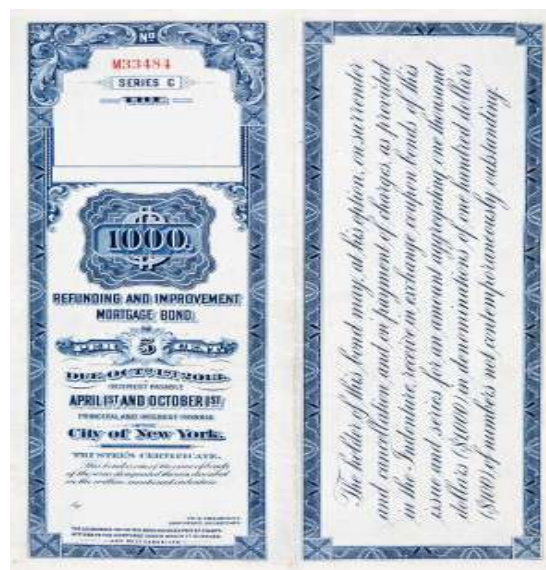 Nº
M33484
SERIES C
THE
1000.
REFUNDING AND IMPROVEMENT
MORTGAGE BOND.
PER 5 CENT.
DUE OCT. 1ST 2013.
INTEREST PAYABLE
APRIL 1ST AND OCTOBER 1ST.
PRINCIPAL AND INTEREST PAYABLE
City of New York.
TRUSTEE'S CERTIFICATE.
This bond is one of the issue of bonds
of the series designated therein, described
in the within mentioned indenture.
By
The holder of this bond may, at his option, on surrender
and cancellation and on payment of charges, as provided
in the Indenture, receive in exchange coupon bonds of this
issue and series for an amount aggregating one thousand
dollars ($1000) in denominations of one hundred dollars
($100) of numbers not contemporaneously outstanding.